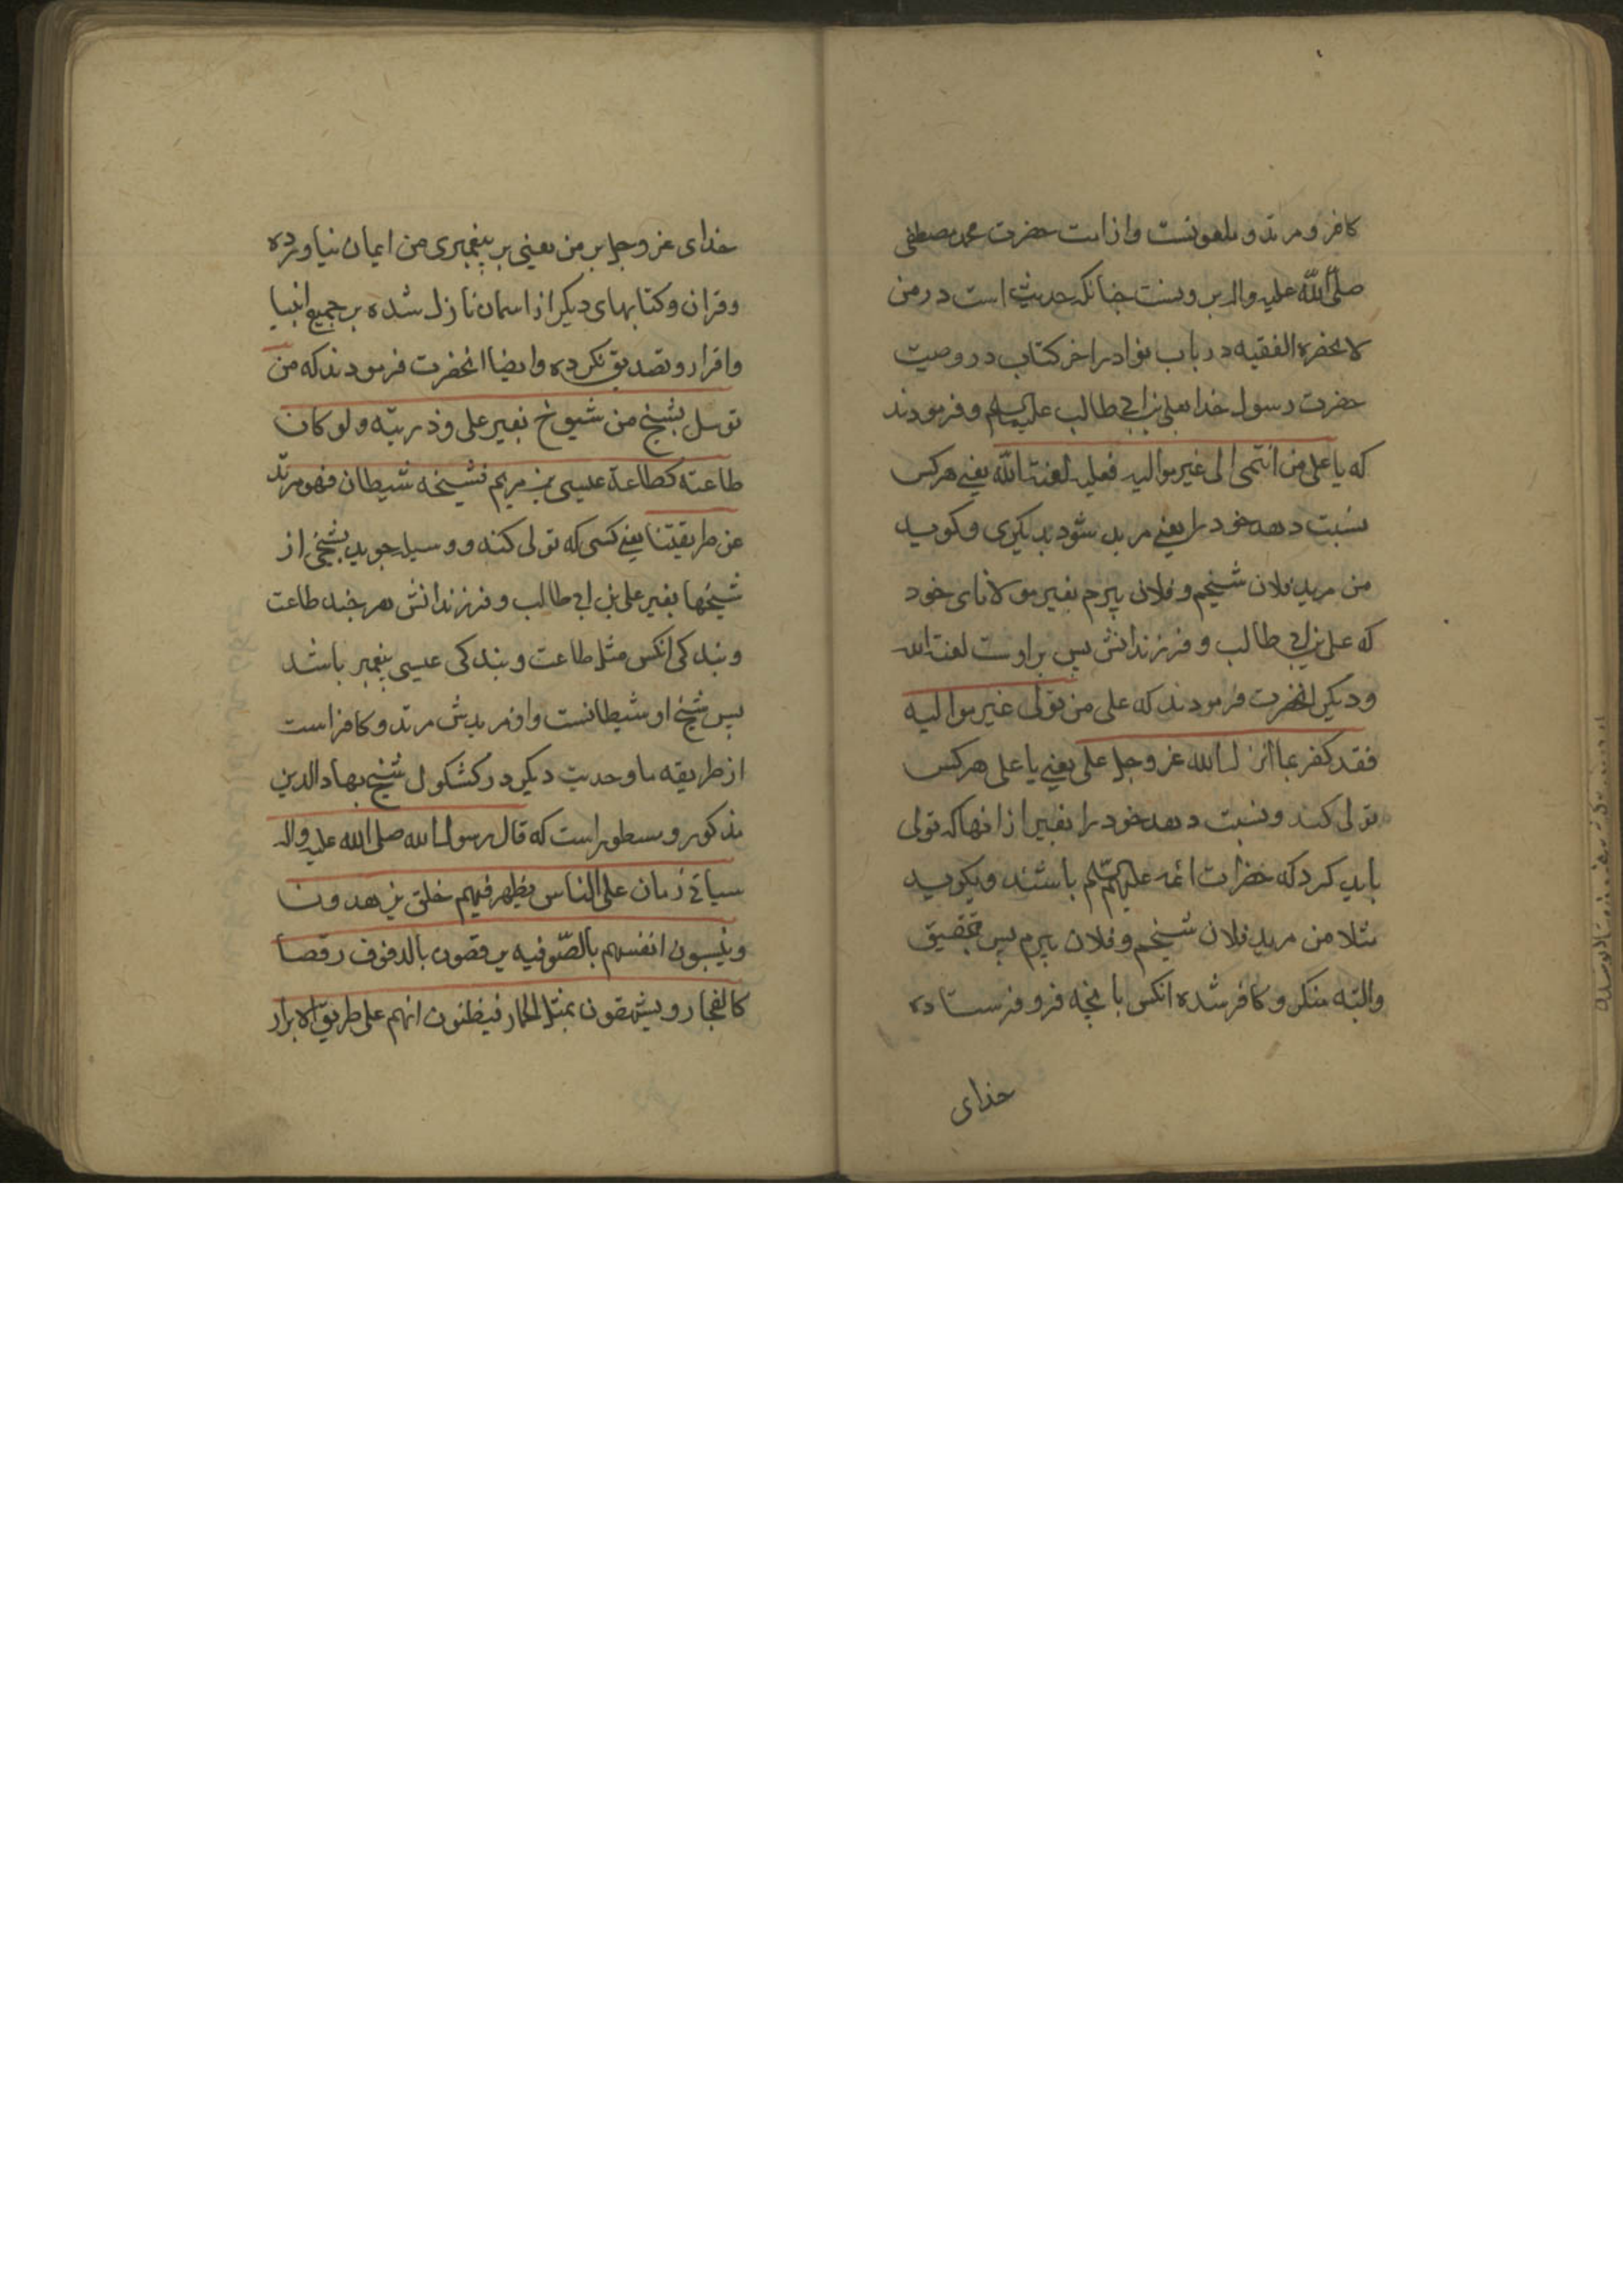 کافر و مرتد و ملعونست و از امت حضرت محمد مصطفی
صلی الله علیه واله بیرونست چنانکه حدیث است در من
لا یحضره الفقیه در باب نوادر اخر کتاب در وصیت
حضرت رسول خدا بعلی بن ابی طالب علیهما السلم و فرمودند
که یا علی من انتمی الی غیر موالیه فعلیه لعنة الله یعنی هرکس
نسبت دهد خود را یعنی مرید شود بدیکری و کوید
من مرید فلان شیخم و فلان پیرم بغیر مولاهای خود
که علی بن ابی طالب و فرزندانش پس بر اوست لعنة الله
و دیکر انحضرت فرمودند که علی من تولی غیر موالیه
فقد کفر بما انزل الله عز وجل علی یعنی یا علی هرکس
تولی کند و نسبت دهد خود را بغیر از انها که تولی
باید کرد که حضرات ائمه علیهم السلم باشند و بکوید
مثلا من مرید فلان شیخم و فلان پیرم پس بتحقیق
والبته منکر و کافر شده انکس بانچه فرو فرستاده
خدای
خدای عز وجل بر من یعنی بر پیغمبری من ایمان نیاورده
و قران و کتابهای دیکر از اسمان نازل شده بر جمیع انبیا
و اقرار و تصدیق نکرده و ایضا انحضرت فرمودند که من
توسل بشیخ من شیوخ بغیر علی و ذریته ولو کان
طاعته کطاعة عیسی بن مریم فشیخه شیطان فهو مرتد
عن طریقتنا یعنی کسی که تولی کند و وسیله جوید بشیخی از
شیخها بغیر علی بن ابی طالب و فرزندانش هر چند طاعت
و بندکی انکس مثل طاعت و بندکی عیسی پیغمبر باشد
پس شیخ او شیطانست و او مریدش مرتد و کافر است
از طریقه ما و حدیث دیکر در کشکول شیخ بهاء الدین
مذکور و مسطور است که قال رسول الله صلی الله علیه واله
سیاتی زمان علی الناس یظهر فیهم خلق یزهدون
و ینسبون انفسهم بالصوفیه یرقصون بالدفوف رقصا
کالفجار و یشهقون بمثل الحمار فیظنون انهم علی طریق الابرار